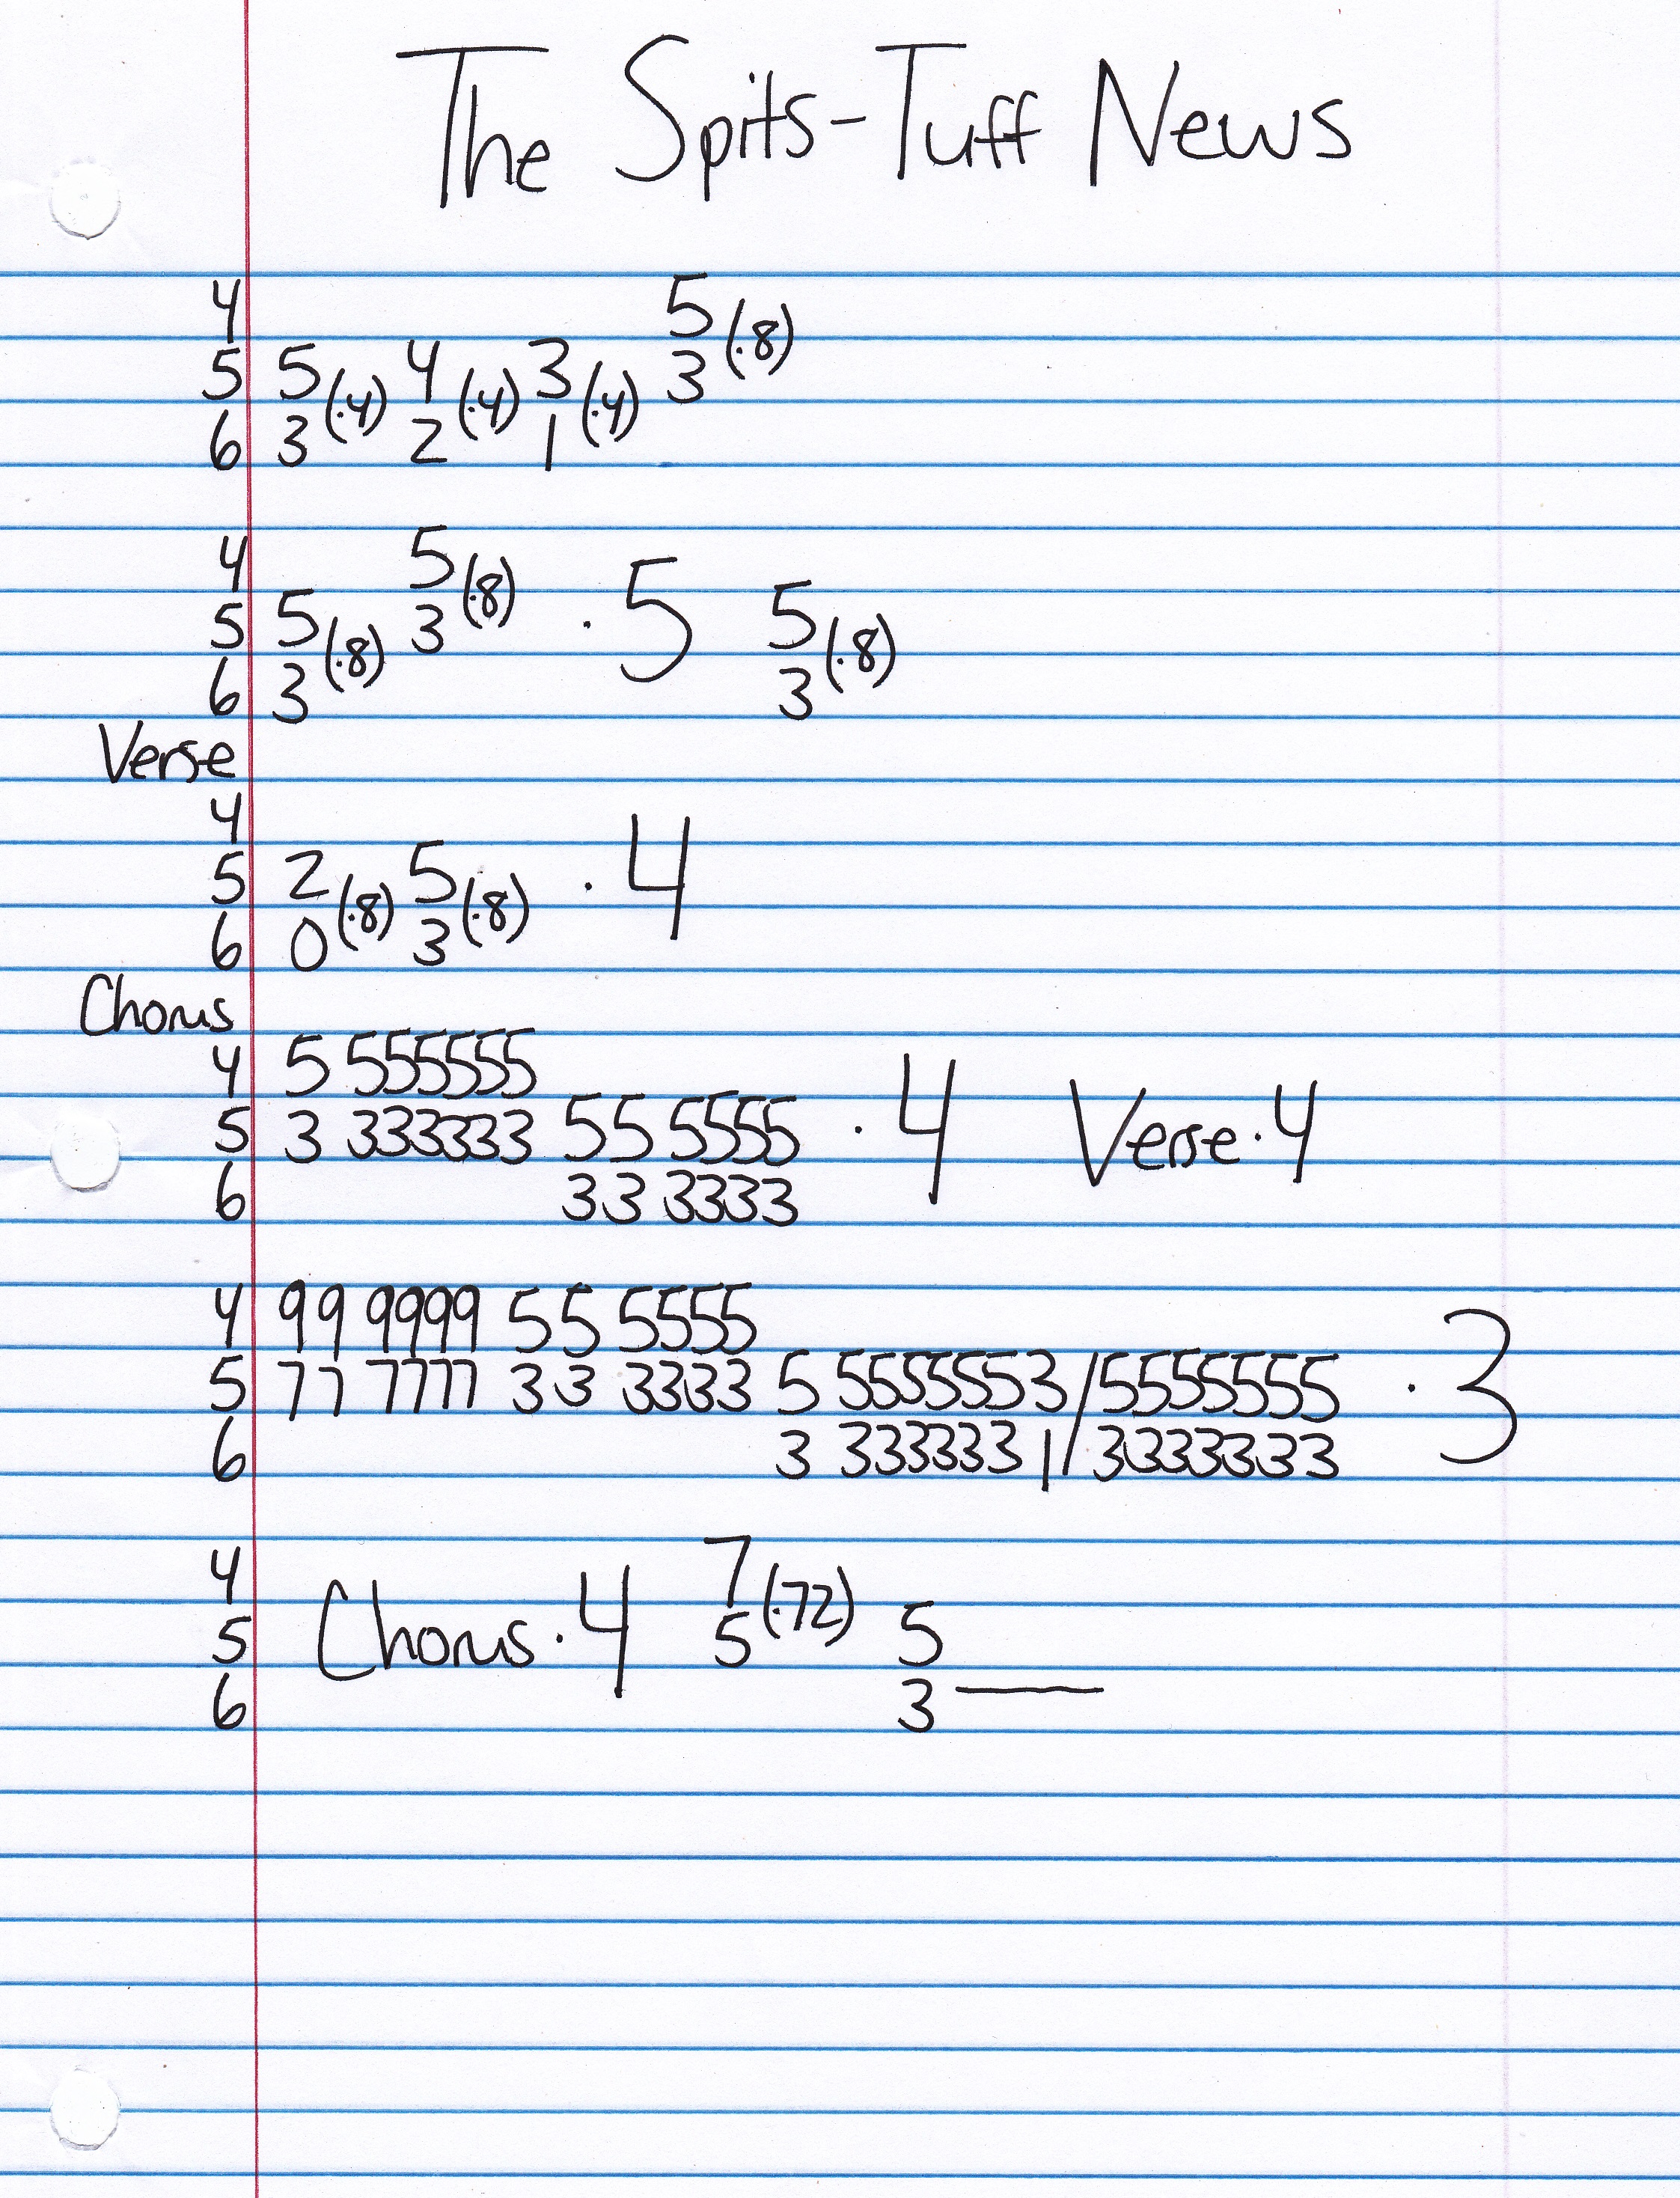 The Spits-Tuff News
4 5
5 5 4 3 3 (·8)
6 3 (·4) 2 (·4) 1 (·4)
4 5
5 5 3 (·8) · 5 5
6 3 (·8) 3 (·8)
Verse
4
5 2 5 · 4
6 0 (·8) 3 (·8)
Chorus
4 5 555555
5 3 333333 55 5555 · 4 Verse · 4
6 33 3333
4 99 9999 55 5555
5 77 7777 33 3333 5 5555553/5555555 · 3
6 3 3333331/3333333
4 7
5 Chorus · 4 5 (·72) 5
6 3 —